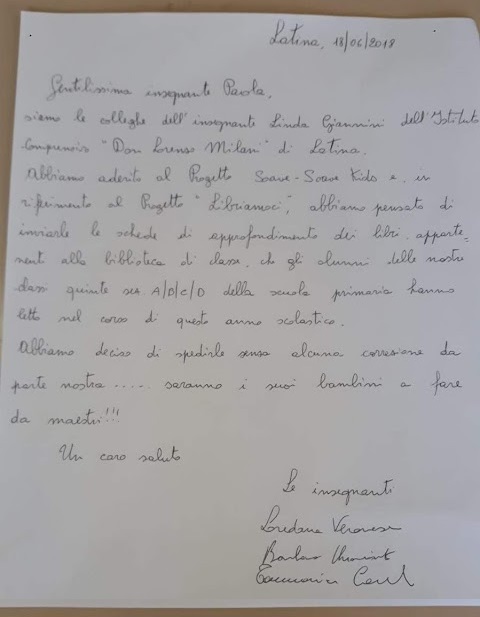 Latina, 18/06/2018
Gentilissima insegnante Paola,
siamo le colleghe dell'insegnante Linda Giannini dell'Istituto
Comprensivo "Don Lorenzo Milani" di Latina.
Abbiamo aderito al Progetto Soave-Soave Kids e, in
riferimento al Progetto "Libriamoci", abbiamo pensato di
inviarle le schede di approfondimento dei libri, apparte_
nenti alla biblioteca di classe, che gli alunni delle nostre
classi quinte sez. A/B/C/D della scuola primaria hanno
letto nel corso di questo anno scolastico.
Abbiamo deciso di spedirle senza alcuna correzione da
parte nostra ..... saranno i suoi bambini a fare
da maestri!!!
Un caro saluto
Le insegnanti
Loredana Veronese
Barbara